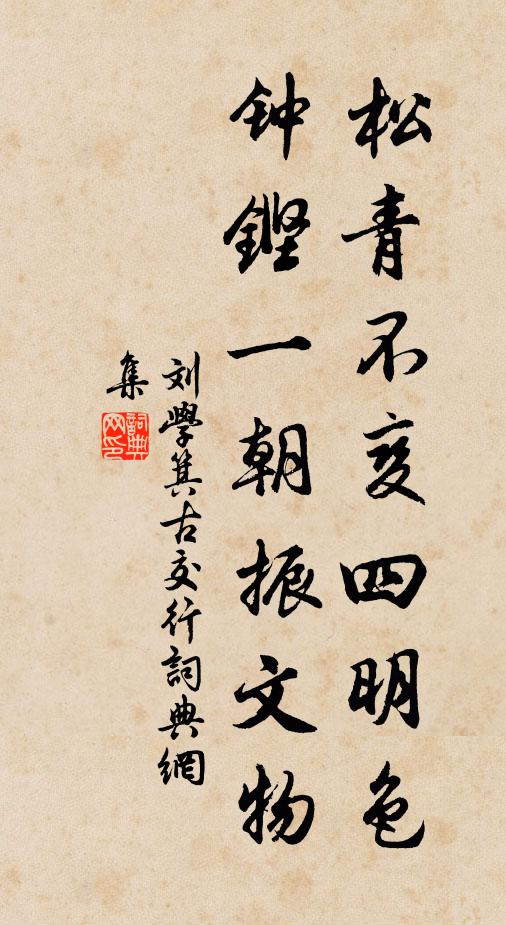 松青不变四明色
钟鏗一朝振文物
刘學箕古交行詞典網
集
詞典网印